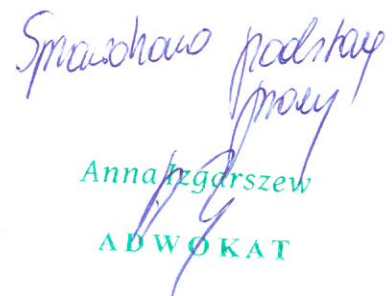 Sprawdzono podstawę
prawną
Anna Izgarszew
ADWOKAT